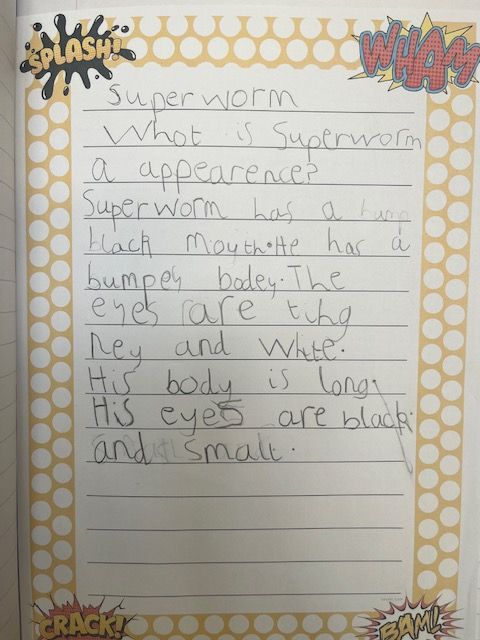 SPLASH!
WHAM
Superworm
What is Superworm
a appearence?
Superworm has a
black mouth. He has a
bumpey bodey. The
eyes are
and white.
His body is long.
His eyes are black.
and small.
CRACK!
BAM!!